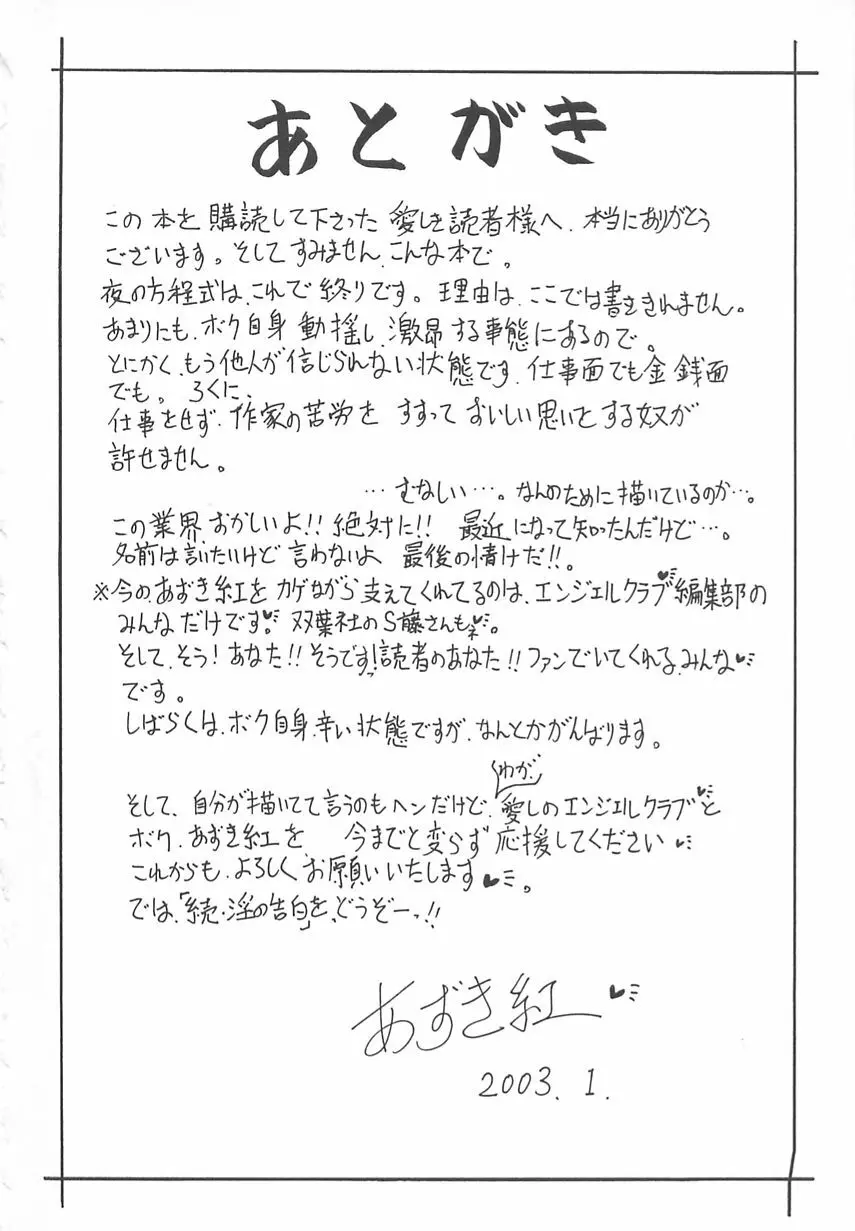 あとがき
この本を購読して下さった愛しき読者様へ、本当にありがとう
ございます。そしてすみません、こんな本で。
夜の方程式は、これで終りです。理由は、ここでは書ききれません。
あまりにも、ボク自身動揺し、激昂する事態にあるので。
とにかく、もう他人が信じられない状態です、仕事面でも金銭面
でも。ろくに、
仕事をせず、作家の苦労をすすっておいしい思いをする奴が
許せません。
…むなしい…。なんのために描いているのか…。
この業界、おかしいよ!!絶対に!!最近になって知ったんだけど…。
名前は言いたいけど言わないよ、最後の情けだ!!。
※今の、あずき紅をカゲながら支えてくれてるのは、エンジェルクラブ♥編集部の
みんなだけです♥。双葉社のS藤さんもネ♥。
そして、そう!あなた!!そうです!読者のあなた!!ファンでいてくれる、みんな♥
です。
しばらくは、ボク自身、辛い状態ですが、なんとかがんばります。
わが
そして、自分が描いてて言うのもヘンだけど、愛しのエンジェルクラブ♥と
ボク、あずき紅を今までと変らず応援してください♥
これからも、よろしくお願いいたします♥。
では、「続・淫の告白」を、どうぞーっ!!
あずき紅♥
2003.1.